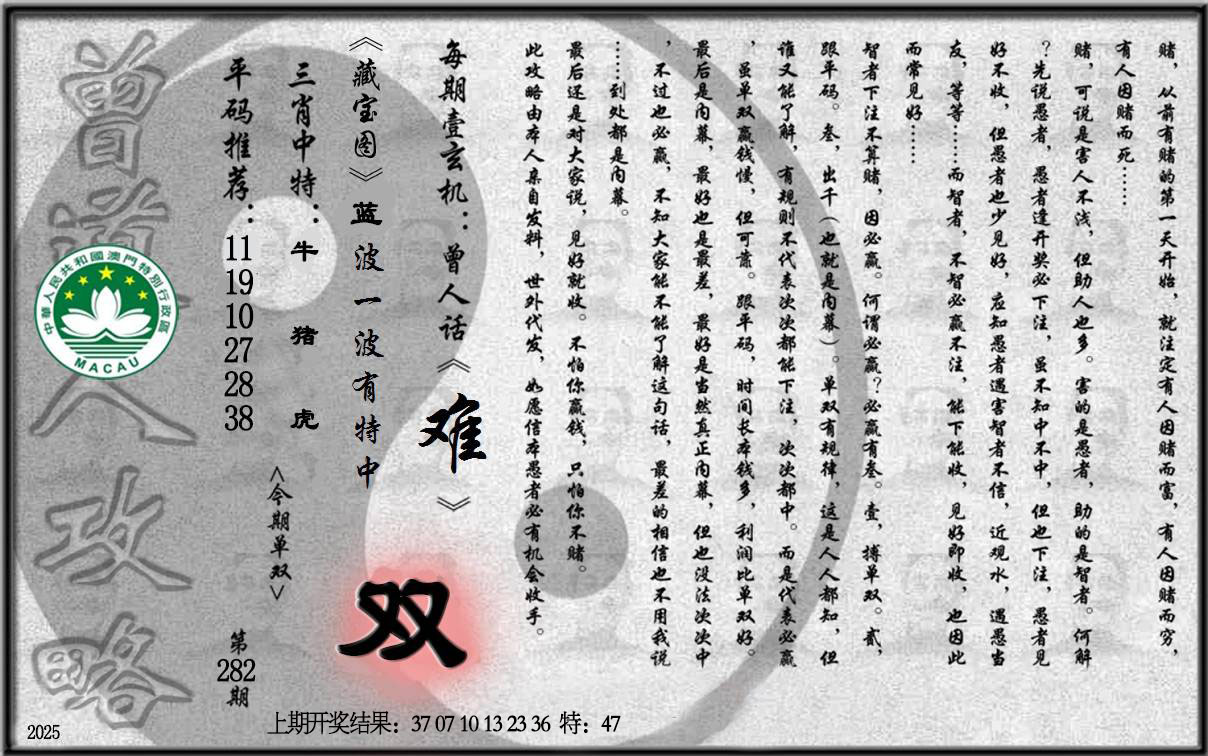 赌，从前有赌的第一天开始，就注定有人因赌而富，有人因赌而穷，
有人因赌而死……
赌，可说是害人不浅，但助人也多。害的是愚者，助的是智者。何解
？先说愚者，愚者逢开奖必下注，虽不知中不中，但也下注，愚者见
好不收，但愚者也少见好，应知愚者遇害智者不信，近观水，遇愚当
友，等等……而智者，不智必赢不注，能下能收，见好即收，也因此
而常见好……
智者下注不算赌，因必赢。何谓必赢？必赢有叁。壹，搏单双。贰，
跟平码。叁，出千（也就是内幕）。单双有规律，这是人人都知，但
谁又能了解，有规则不代表次次都能下注，次次都中。而是代表必赢
，虽单双赢钱慢，但可靠。跟平码，时间长本钱多，利润比单双好。
最后是内幕，最好也是最差，最好是当然真正内幕，但也没法次次中
，不过也必赢，不知大家能不能了解这句话，最差的相信也不用我说
……到处都是内幕。
最后还是对大家说，见好就收。不怕你赢钱，只怕你不赌。
此攻略由本人亲自发料，世外代发，如愿信本愚者必有机会收手。
每期壹玄机：曾人话《难》
《藏宝图》蓝波一波有特中
双
三肖中特：牛 猪 虎
<今期单双>
平码推荐：
11
19
10
27
28
38
第
282
期
曾道人攻略
中華人民共和國澳門特別行政區
MACAU
上期开奖结果：37 07 10 13 23 36 特：47
2025